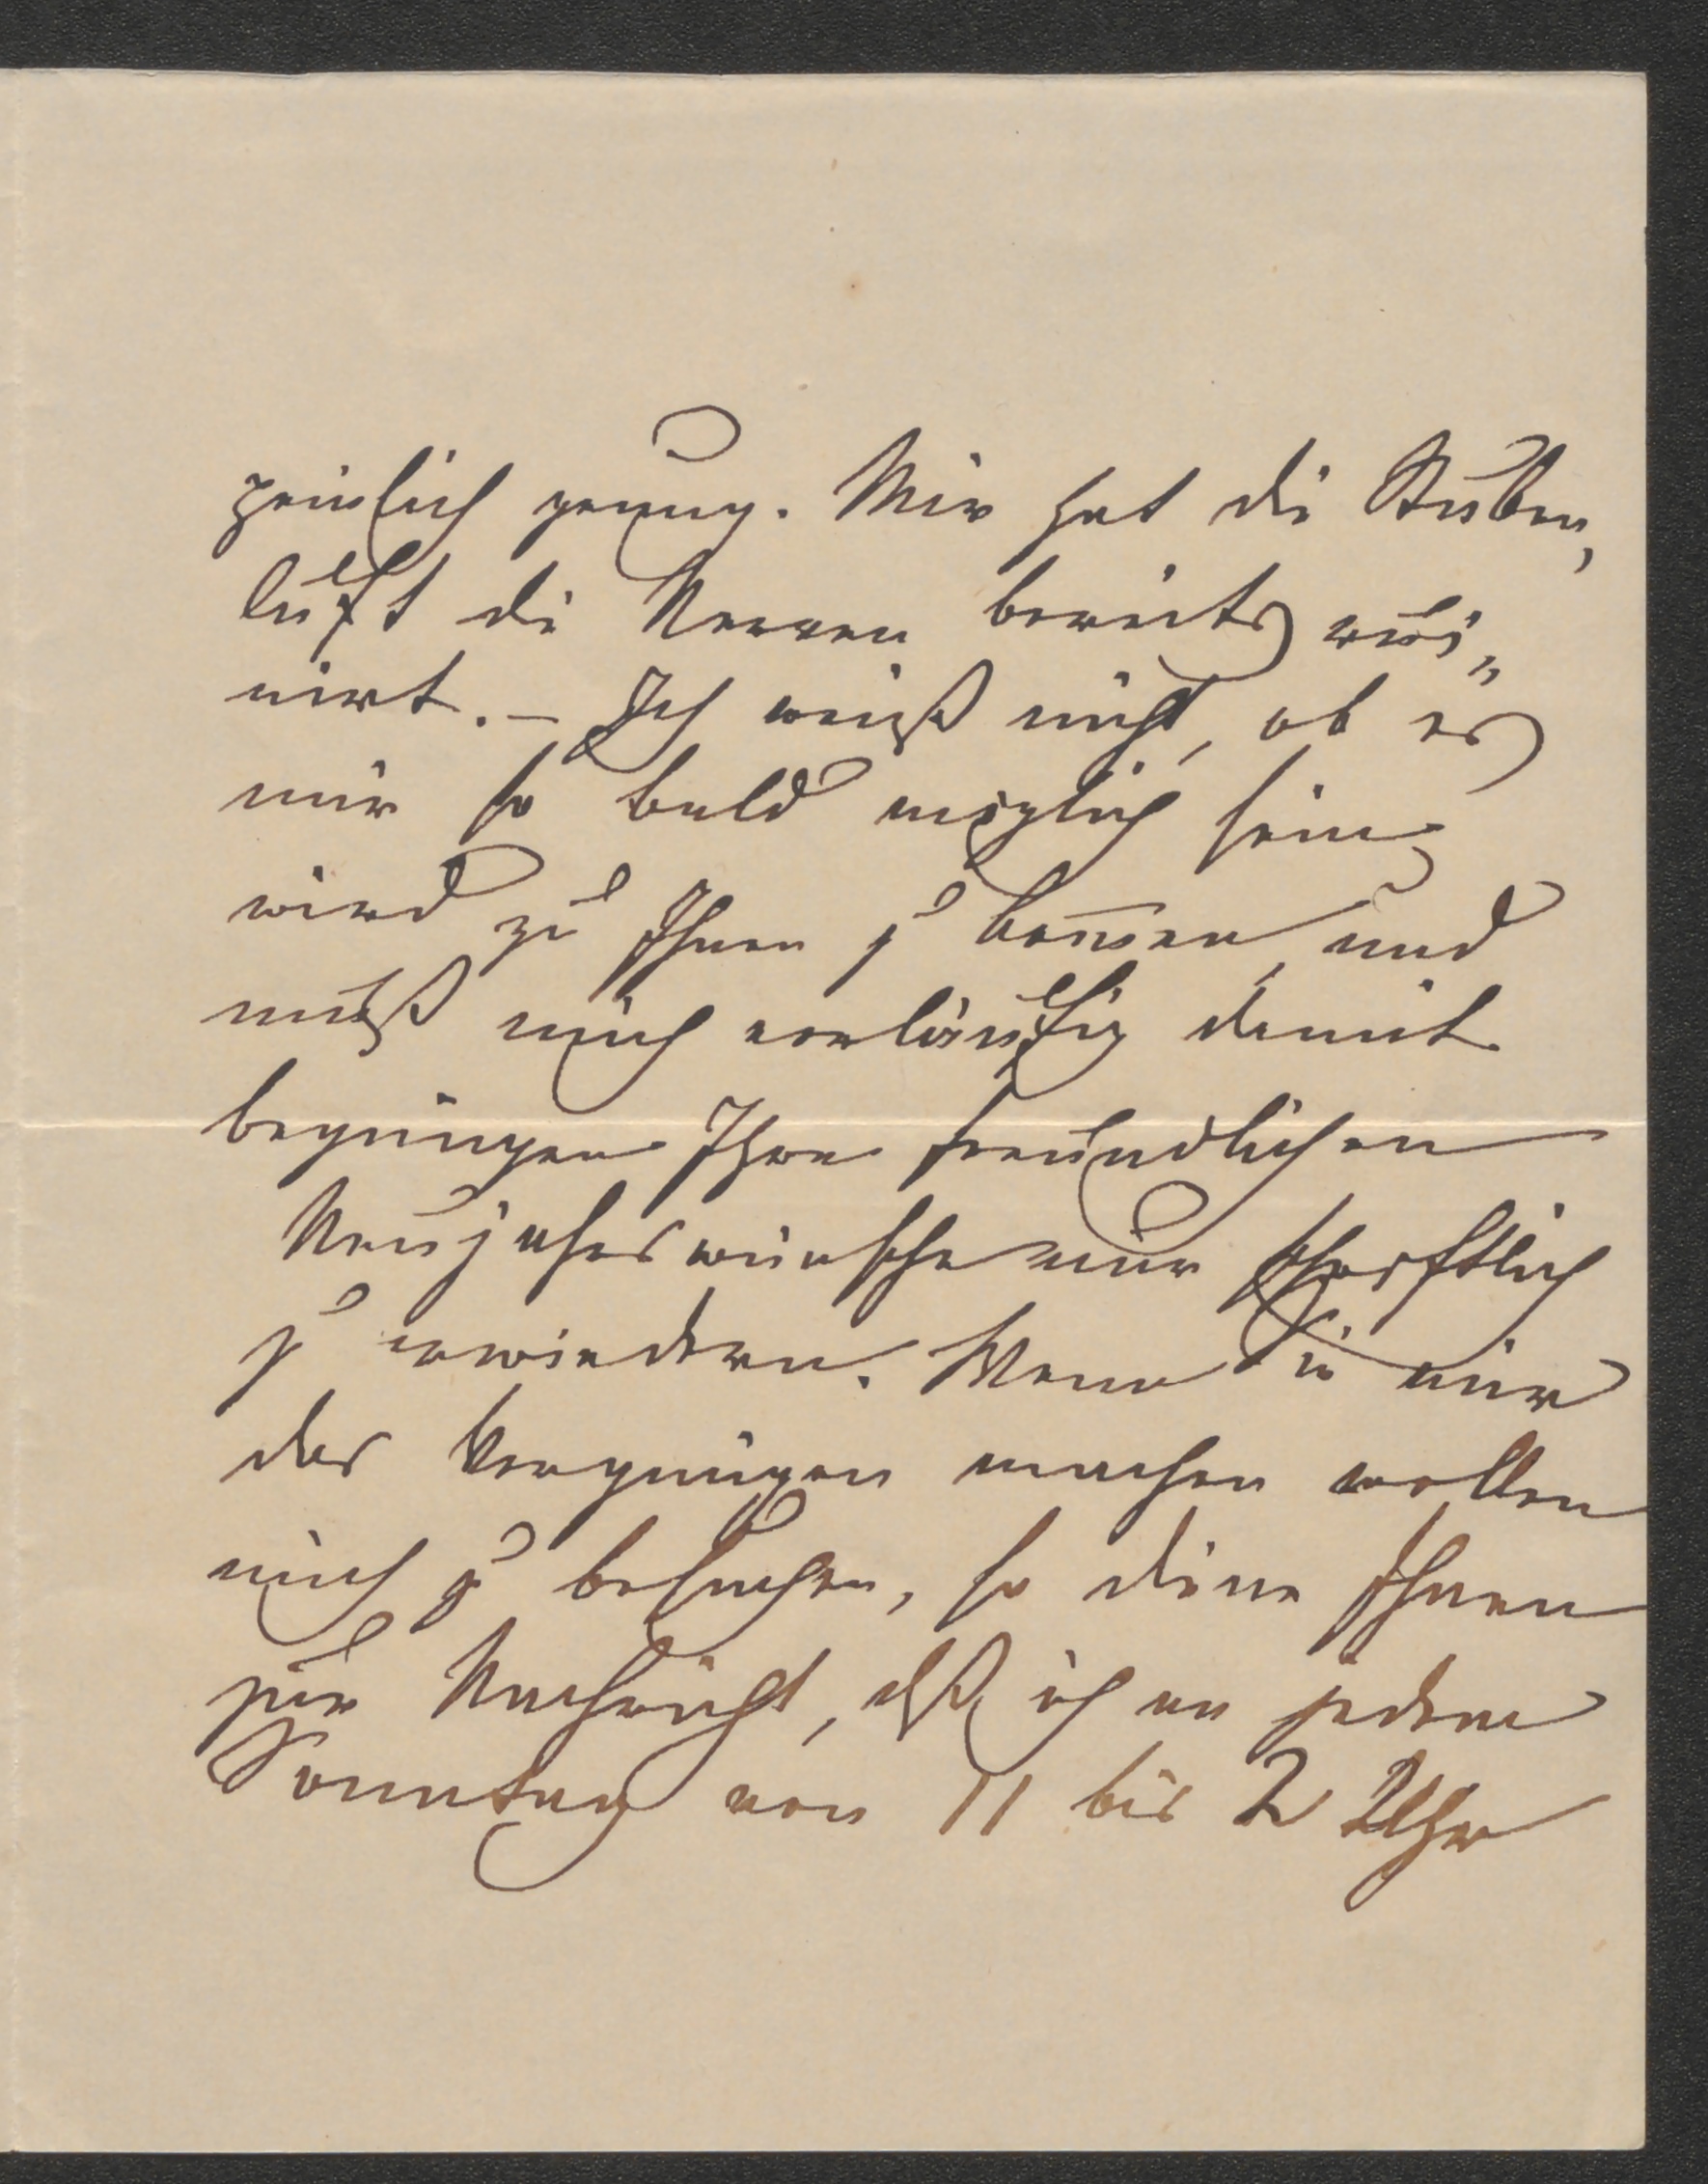 peinlich genug. Mir hat die Stuben,
luft die Nerven bereits rui„
nirt. – Ich weiß nicht, ob es
mir so bald möglich sein
wird zu Ihnen zu kom̅en, und
muß mich vorläufig damit
begnügen Ihre freundlichen
Neujahrswünsche nur schriftlich
zu erwiedern. Wenn Sie mir
das Vergnügen machen wollen
mich zu besuchen, so diene Ihnen
zur Nachricht, dß ich an jedem
Sonntag von 11 bis 2 Uhr